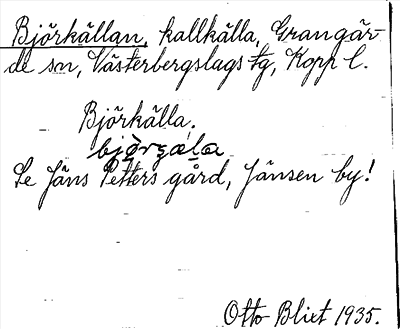 Björkällan, kallkälla, Grangär-
de sn, Västerbergslags tg, Kopp l.
Björkälla.
Se Jäns Petters gård, Jänsen by!
Otto Blixt 1935.